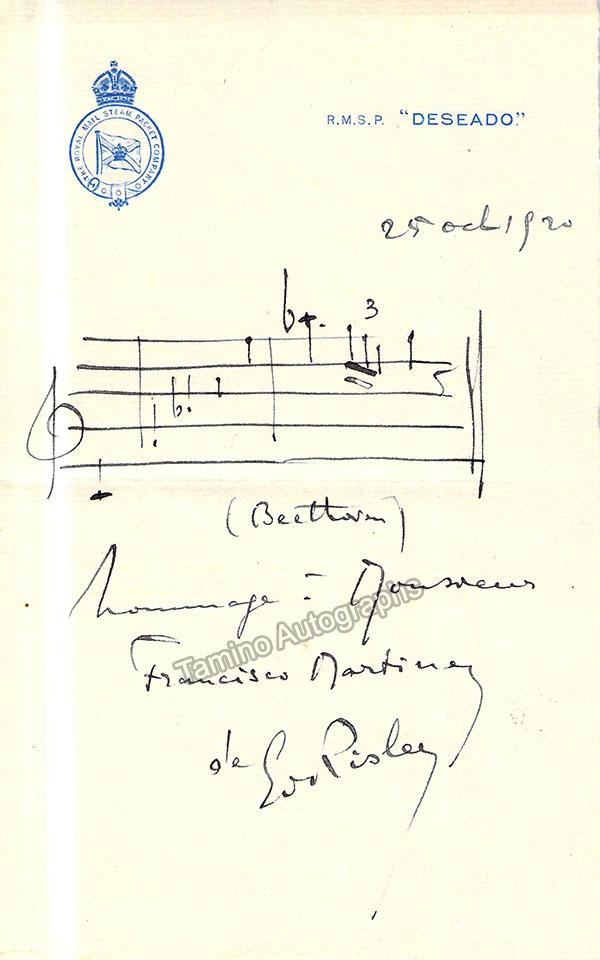 THE ROYAL MAIL STEAM PACKET COMPANY
R.M.S.P. "DESEADO."
25 oct 1920
3
(Beethoven)
hommage à Monsieur
Francisco Martinez
de Ed Risler
Tamino Autographs